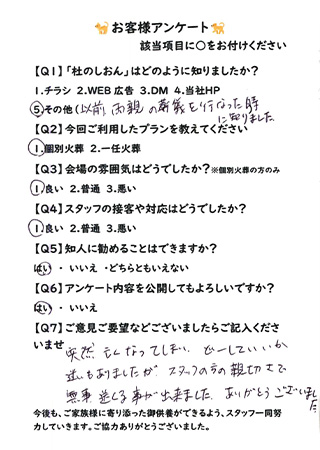 お客様アンケート
該当項目に○をお付けください
【Q1】「杜のしおん」はどのように知りましたか?
1.チラシ 2.WEB広告 3.DM 4.当社HP
⑤その他(以前、両親の葬儀を行なった時
に知りました。
【Q2】今回ご利用したプランを教えてください
①.個別火葬 2.一任火葬
【Q3】会場の雰囲気はどうでしたか?※個別火葬の方のみ
①.良い 2.普通 3.悪い
【Q4】スタッフの接客や対応はどうでしたか?
①.良い 2.普通 3.悪い
【Q5】知人に勧めることはできますか?
はい ・ いいえ ・どちらともいえない
【Q6】アンケート内容を公開してもよろしいですか?
はい ・ いいえ
【Q7】ご意見ご要望などございましたらご記入くださ
いませ
突然亡くなってしまい どーしていいか
迷もありましたが スタッフの方の親切さで
無事 送くる事が出来ました。ありがとうございました
今後も、ご家族様に寄り添った御供養ができるよう、スタッフ一同努
力していきます。ご協力ありがとうございました。